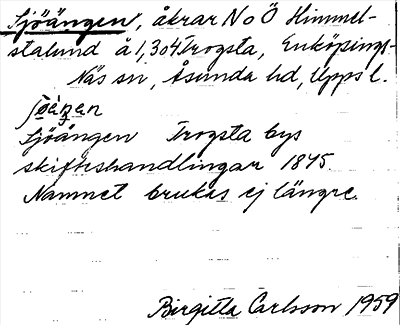 Sjöängen, åkrar N o Ö Himmel-
stalund å 1, 3 o 4 Trogsta, Enköpings-
Näs sn, Åsunda hd, Upps l.
Sjöängen Trogsta bys
skifteshandlingar 1845.
Namnet brukas ej längre.
Birgitta Carlsson 1959